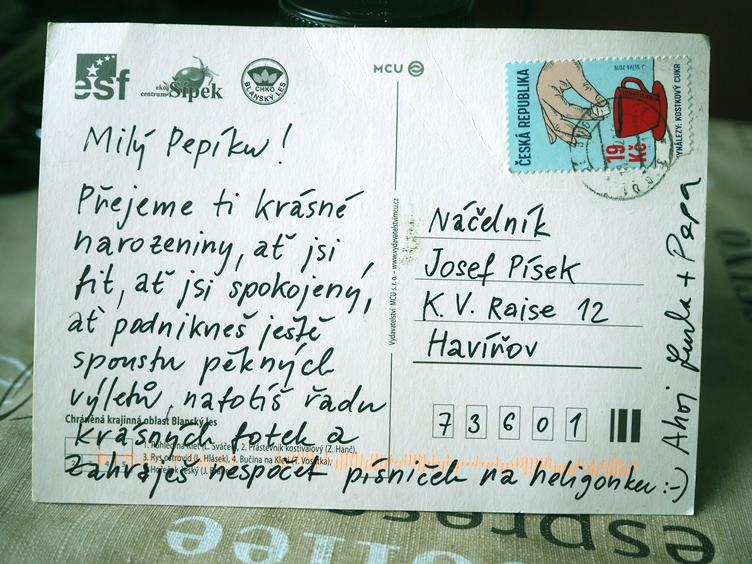 esf
ekocentrum Šípek
CHKO
BLANSKÝ LES
MCU
ČESKÁ REPUBLIKA
19 Kč
J. SLÍVA 2019
VYNÁLEZY: KOSTKOVÝ CUKR
Milý Pepíku!
Přejeme ti krásné
narozeniny, ať jsi
fit, ať jsi spokojený,
ať podnikneš ještě
spoustu pěkných
výletů, nafotíš řadu
krásných fotek a
zahraješ nespočet písniček na heligonku :-)
Ahoj + Pepa
Chráněná krajinná oblast Blanský les
1. Pohled na Kleť (L. Sváček), 2. Prástevník kostivalový (Z. Hanč),
3. Rys ostrovid (J. Hlásek), 4. Bučina na Kleti (T. Vosátka),
Vydavatelství MCU s.r.o. – www.vydavatelstvimcu.cz
Náčelník
Josef Písek
K. V. Raise 12
Havířov
73601
espresso
coffee